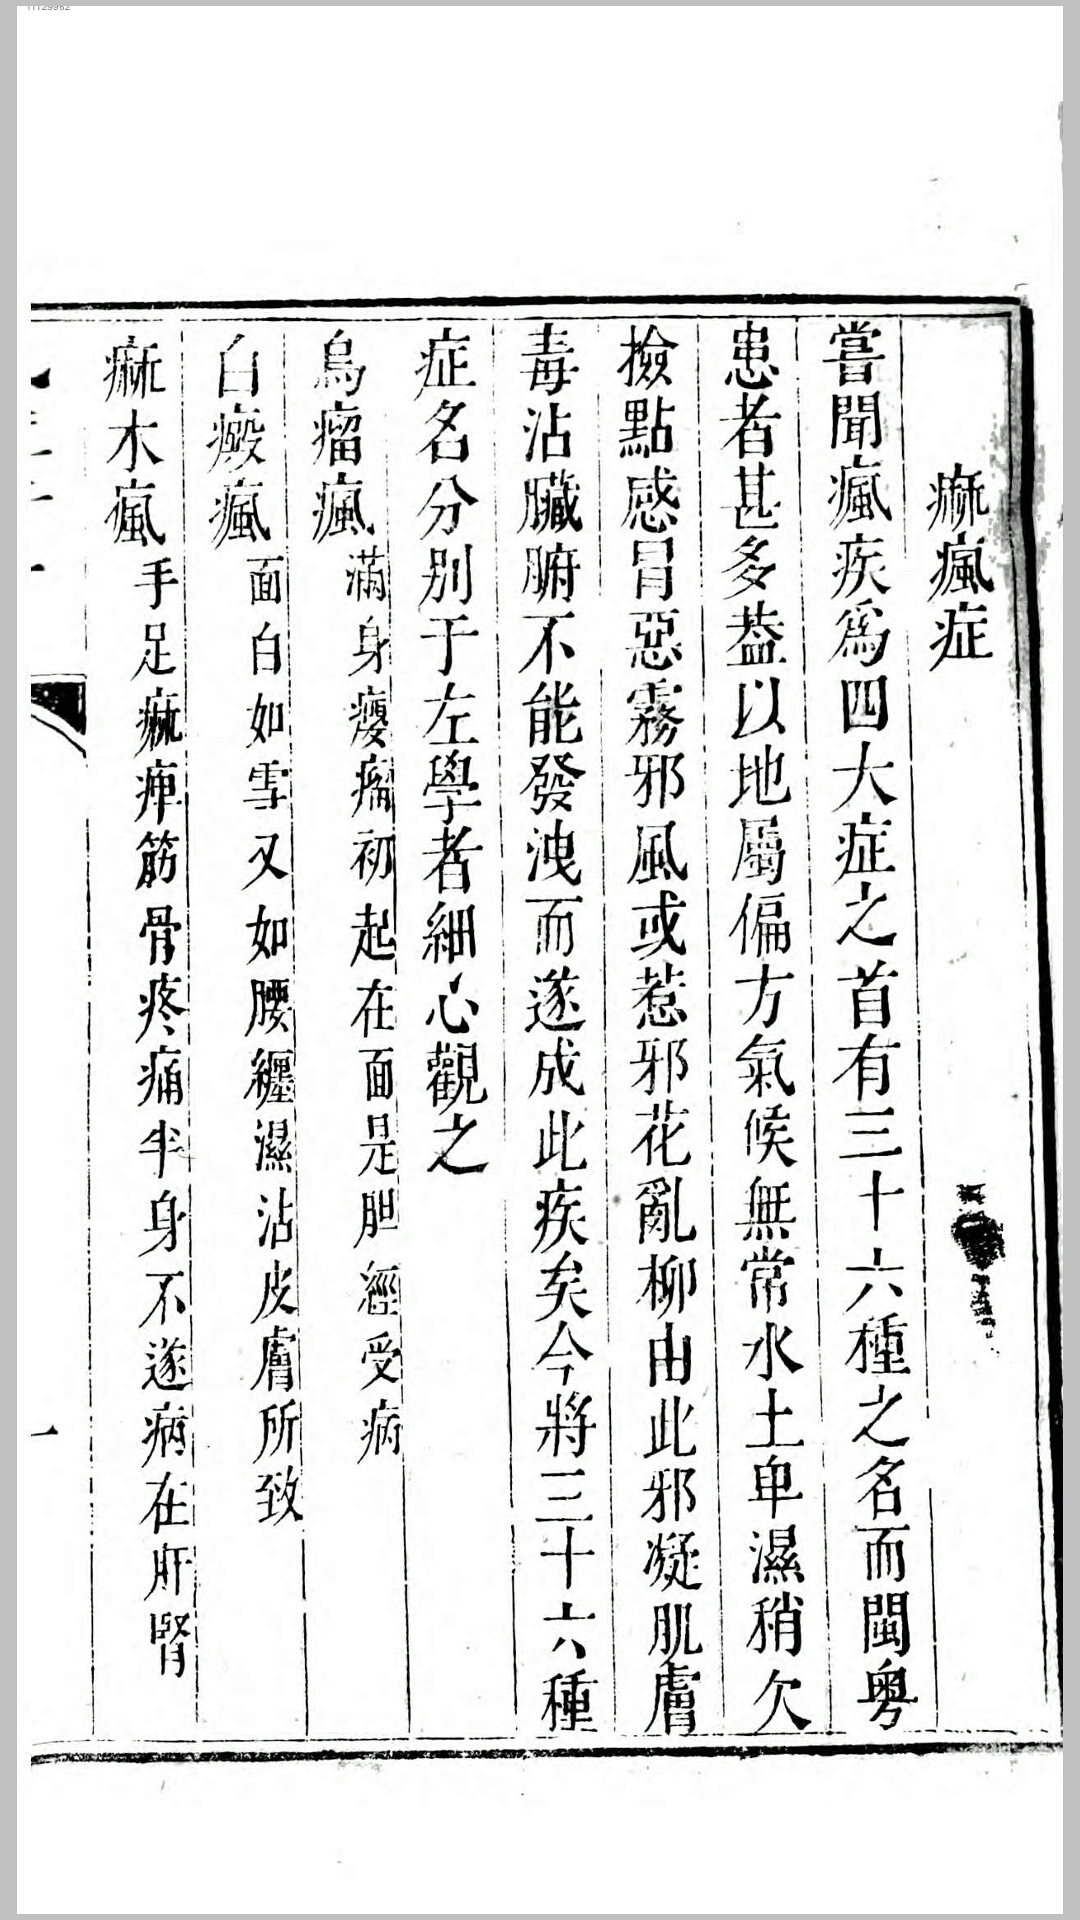 痳瘋症
嘗聞瘋疾爲四大症之首有三十六種之名而閩粵
患者甚多葢以地屬偏方氣候無常水土卑濕稍欠
撿點感冒惡霧邪風或惹邪花亂柳由此邪凝肌膚
毒沾臟腑不能發洩而遂成此疾矣今將三十六種
症名分別于左學者細心觀之
烏瘤瘋 滿身初起在面是胆經受病
白癜瘋 面白如雪又如腰纏濕沾皮膚所致
痳木瘋 手足痳痺筋骨疼痛半身不遂病在肝腎
一